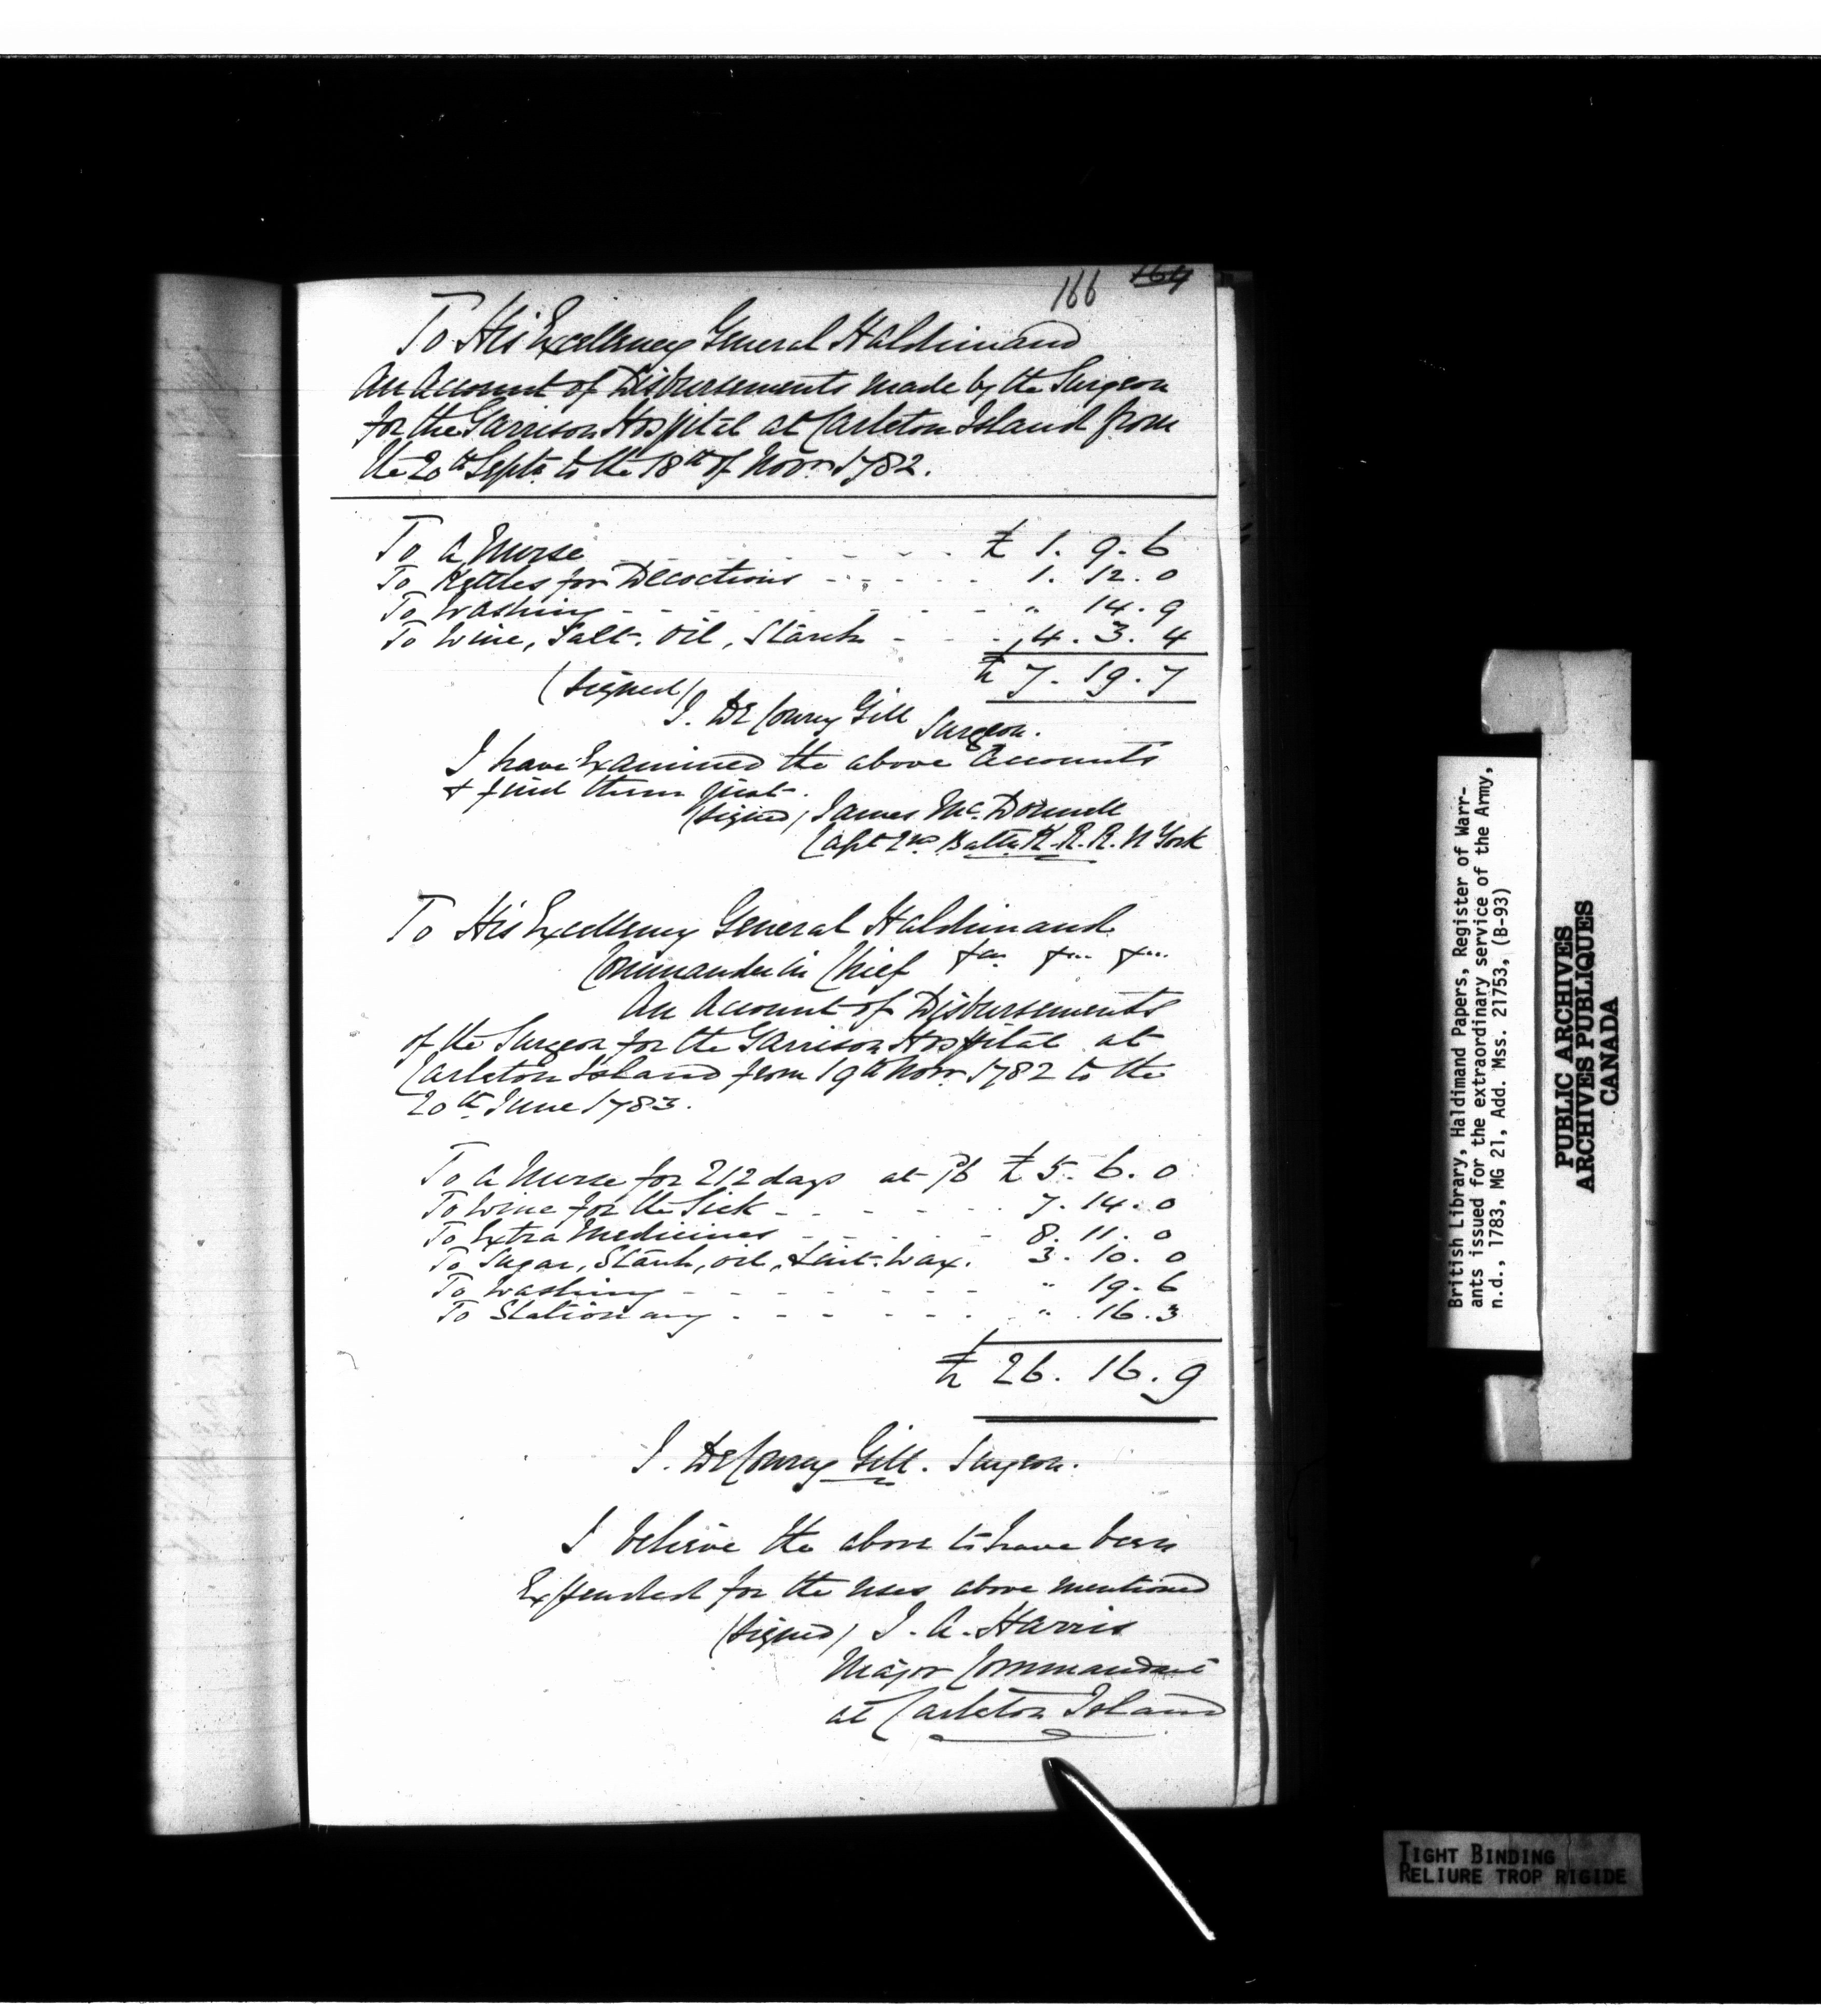 166 164
To His Excellency General Haldimand
An Account of Disbursements made by the Surgeon
for the Garrison Hospital at Carleton Island from
the 20th Septr. to the 18th of Novr. 1782.
To a Nurse - - - - £ 1. 9. 6
To Kettles for Decoctions - - - - - 1. 12. 0
To Washing - - - - - - - - " 14. 9
To Wine, Salt. Oil, Starch - - - 4. 3. 4
£ 7. 19. 7
(Signed)
J. De Courcy Gill Surgeon.
I have Examined the above Accounts
& find them just.
(Signed) James Mc. Donnell
Capt 2nd Battn. K. R. R. N York
To His Excellency General Haldimand
Commander in Chief &c. &c. &c.
An Account of Disbursements
of the Surgeon for the Garrison Hospital at
Carleton Island from 19th Novr. 1782 to the
20th June 1783.
To a Nurse for 212 days at £ 5. 6. 0
To Wine for the Sick - - - - - 7. 14. 0
To Extra Medicines - - - - - 8. 11. 0
To Sugar, Starch, oil, Lint. Wax. 3. 10. 0
To Washing - - - - - - - " 19. 6
To Stationary - - - - - - " 16. 3
£ 26. 16. 9
J. De Courcy Gill. Surgeon.
I believe the above to have been
Expended for the uses above mentioned
(Signed) J. A. Harris
Major Commandant
at Carleton Island
British Library, Haldimand Papers, Register of Warr-
ants issued for the extraordinary service of the Army,
n.d., 1783, MG 21, Add. Mss. 21753, (B-93)
PUBLIC ARCHIVES
ARCHIVES PUBLIQUES
CANADA
TIGHT BINDING
RELIURE TROP RIGIDE